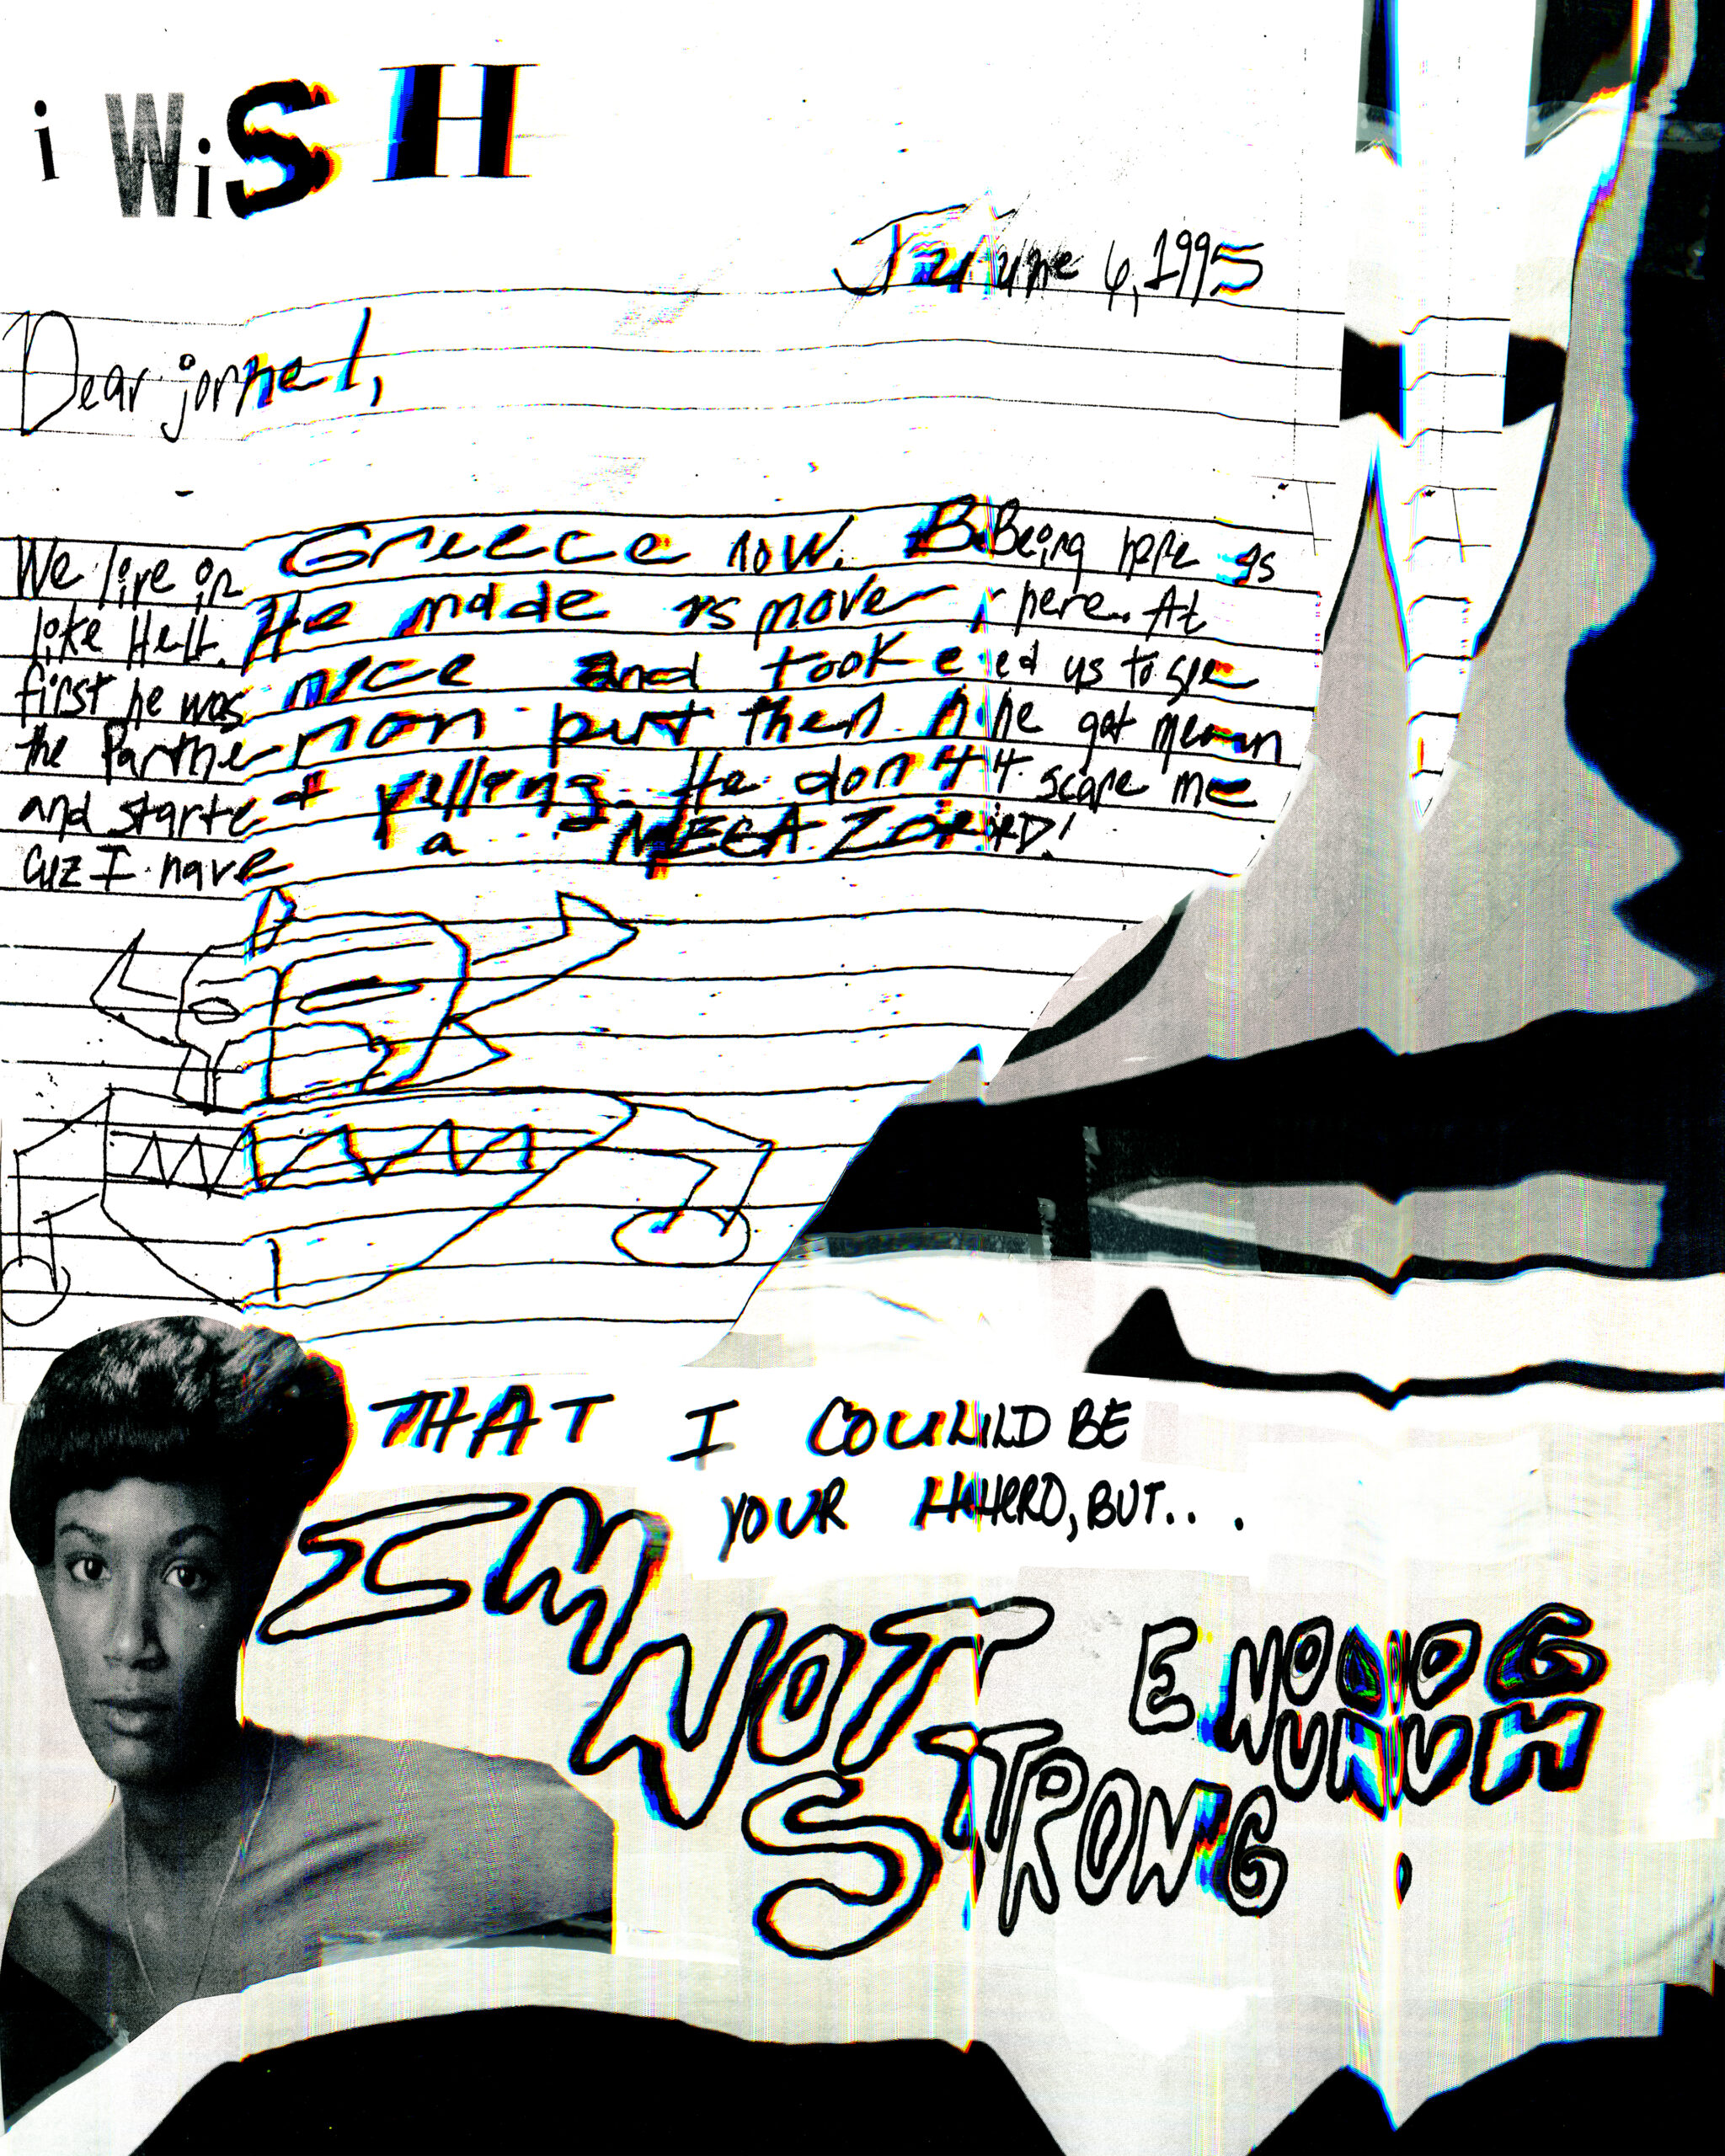 i WiSH
June 6, 1995
Dear jornel,
We live in Greece now. BBeing here is
like Hell. He made us move here. At
first he was nice and took ed us to see
the Parthenon but then he got mean
and started yelling. He don't scare me
cuz I have a MEGA ZORD!
THAT I COULILILD BE
YOUR HEHERO, BUT...
IM
NOT ENOUOUG
STRONG UHUH.